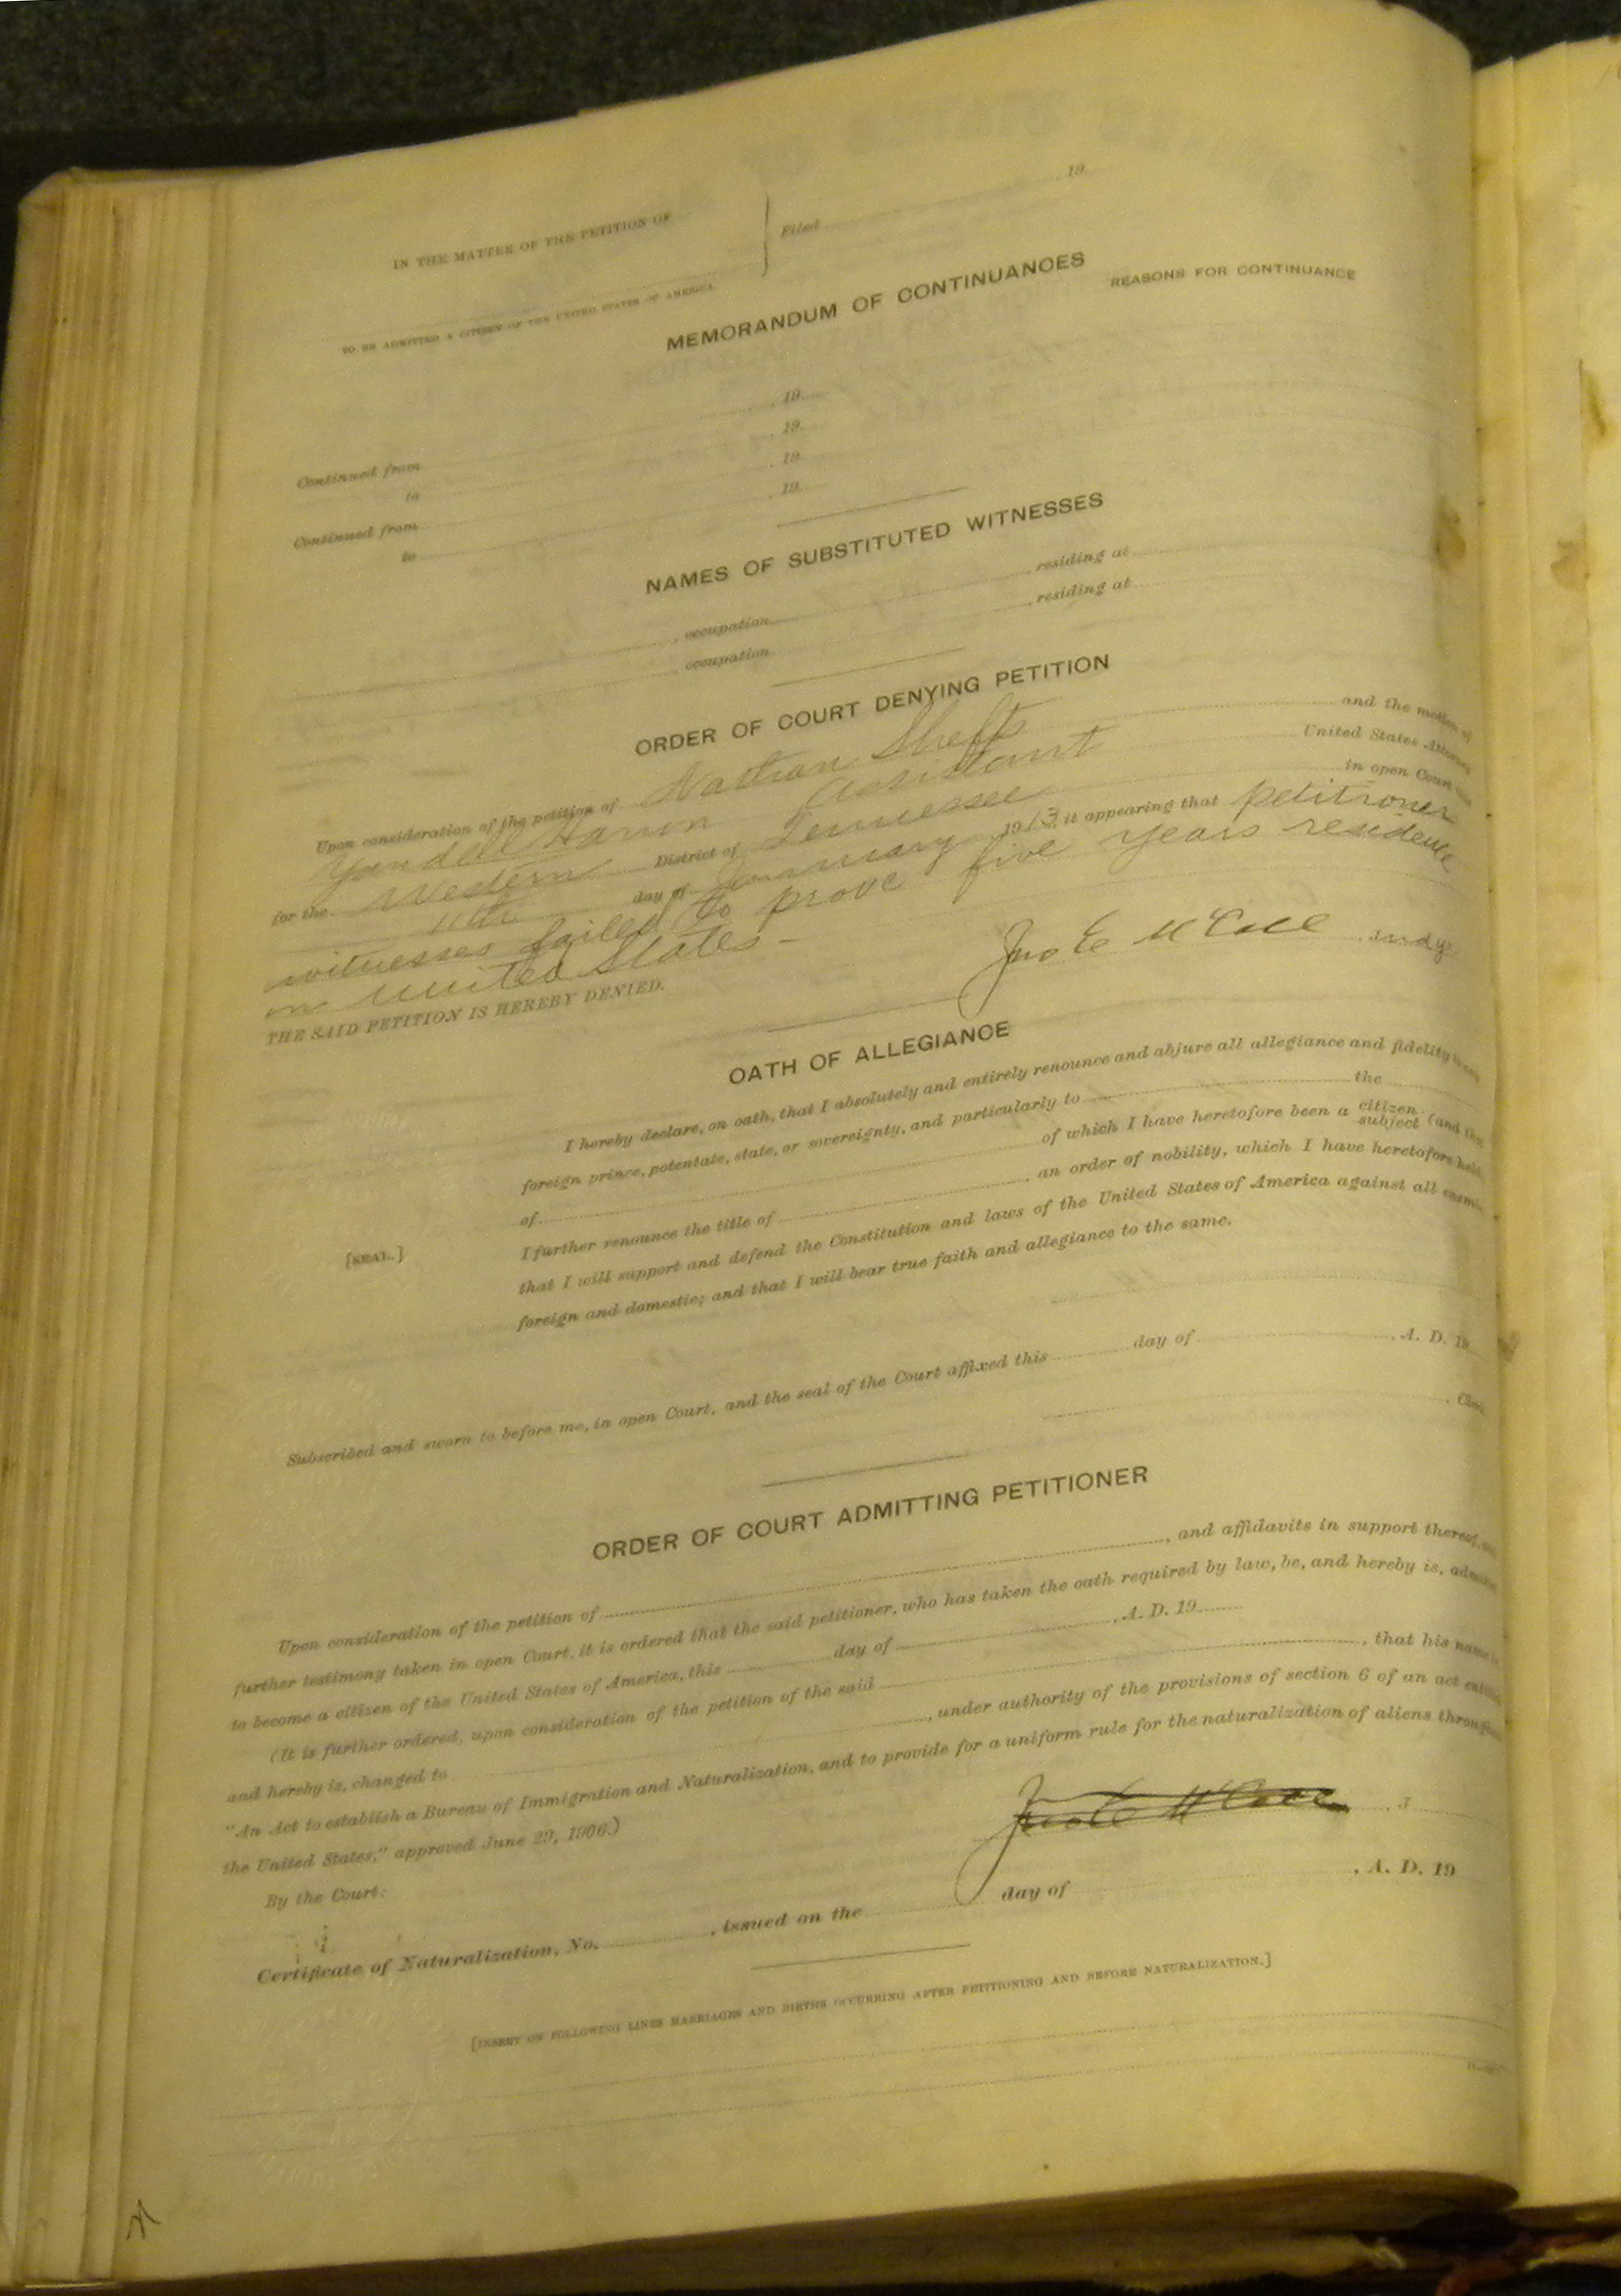 IN THE MATTER OF THE PETITION OF
Filed , 19
TO BE ADMITTED A CITIZEN OF THE UNITED STATES OF AMERICA.
MEMORANDUM OF CONTINUANCES
REASONS FOR CONTINUANCE
Continued from , 19
to , 19
Continued from , 19
to , 19
NAMES OF SUBSTITUTED WITNESSES
, occupation , residing at
, occupation , residing at
ORDER OF COURT DENYING PETITION
Upon consideration of the petition of Nathan Shefts and the motion of
Yandell Assistant United States
for the Western District of Tennessee in open Court
11th day of January 1913, it appearing that petitioner
witnesses failed to prove five years residence
in United States -
THE SAID PETITION IS HEREBY DENIED.
Jno E McCall Judge
OATH OF ALLEGIANCE
I hereby declare, on oath, that I absolutely and entirely renounce and abjure all allegiance and fidelity
foreign prince, potentate, state, or sovereignty, and particularly to the
of of which I have heretofore been a citizen subject (and
I further renounce the title of , an order of nobility, which I have heretofore held
that I will support and defend the Constitution and laws of the United States of America against all
foreign and domestic; and that I will bear true faith and allegiance to the same.
[SEAL.]
Subscribed and sworn to before me, in open Court, and the seal of the Court affixed this day of , A. D. 19
, Clerk
ORDER OF COURT ADMITTING PETITIONER
Upon consideration of the petition of , and affidavits in support thereof,
further testimony taken in open Court, it is ordered that the said petitioner, who has taken the oath required by law, be, and hereby is,
to become a citizen of the United States of America, this day of , A. D. 19
(It is further ordered, upon consideration of the petition of the said , that his name
and hereby is, changed to , under authority of the provisions of section 6 of an act
"An Act to establish a Bureau of Immigration and Naturalization, and to provide for a uniform rule for the naturalization of aliens
the United States," approved June 29, 1906.)
By the Court:
Jno E McCall , J
Certificate of Naturalization, No. , issued on the day of , A. D. 19
[INSERT ON FOLLOWING LINES MARRIAGES AND BIRTHS OCCURRING AFTER PETITIONING AND BEFORE NATURALIZATION.]